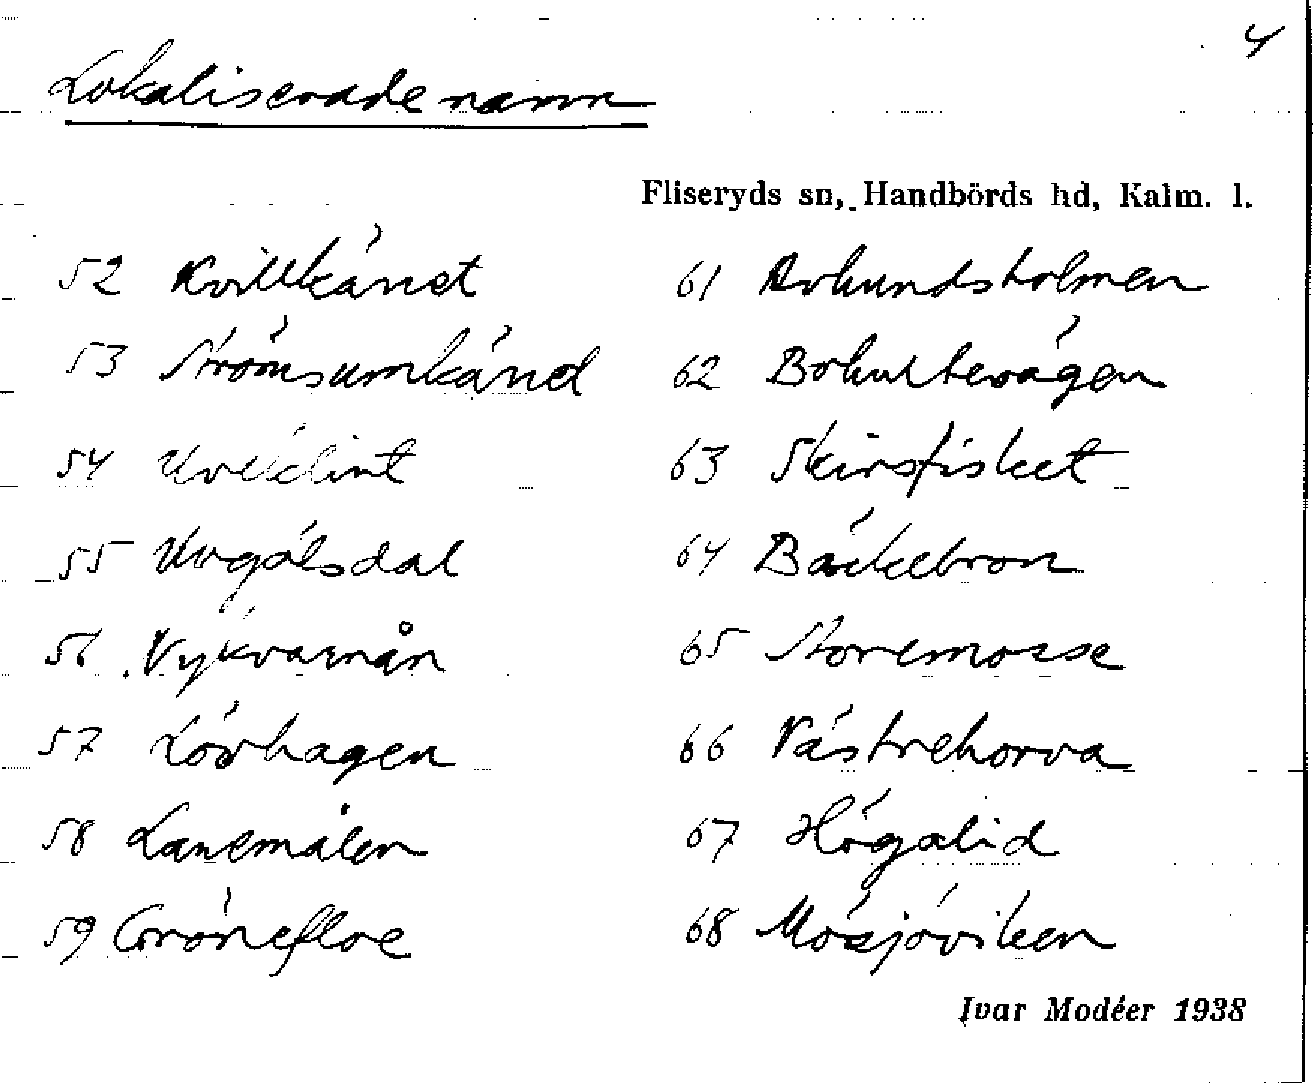 4
Lokaliserade namn
Fliseryds sn, Handbörds hd, Kalm. l.
52 Kvillkänet
53 Strömsumkänd
54
55 Uvgölsdal
56 Nykvarnån
57 Lövhagen
58 Lanemålen
59 Grönefloe
61
62 Bohultevägen
63 Skirsfisket
64 Bäckebron
65 Storemosse
66 Västrehorva
67 Högalid
68 Mösjöviken
Ivar Modéer 1938